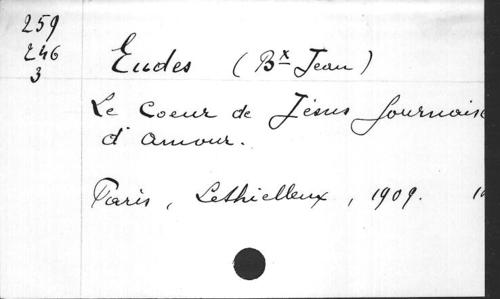 259
246
3
Eudes (Bx Jean)
Le Coeur de Jésus fournaise
d'amour.
Paris, Lethielleux, 1909.